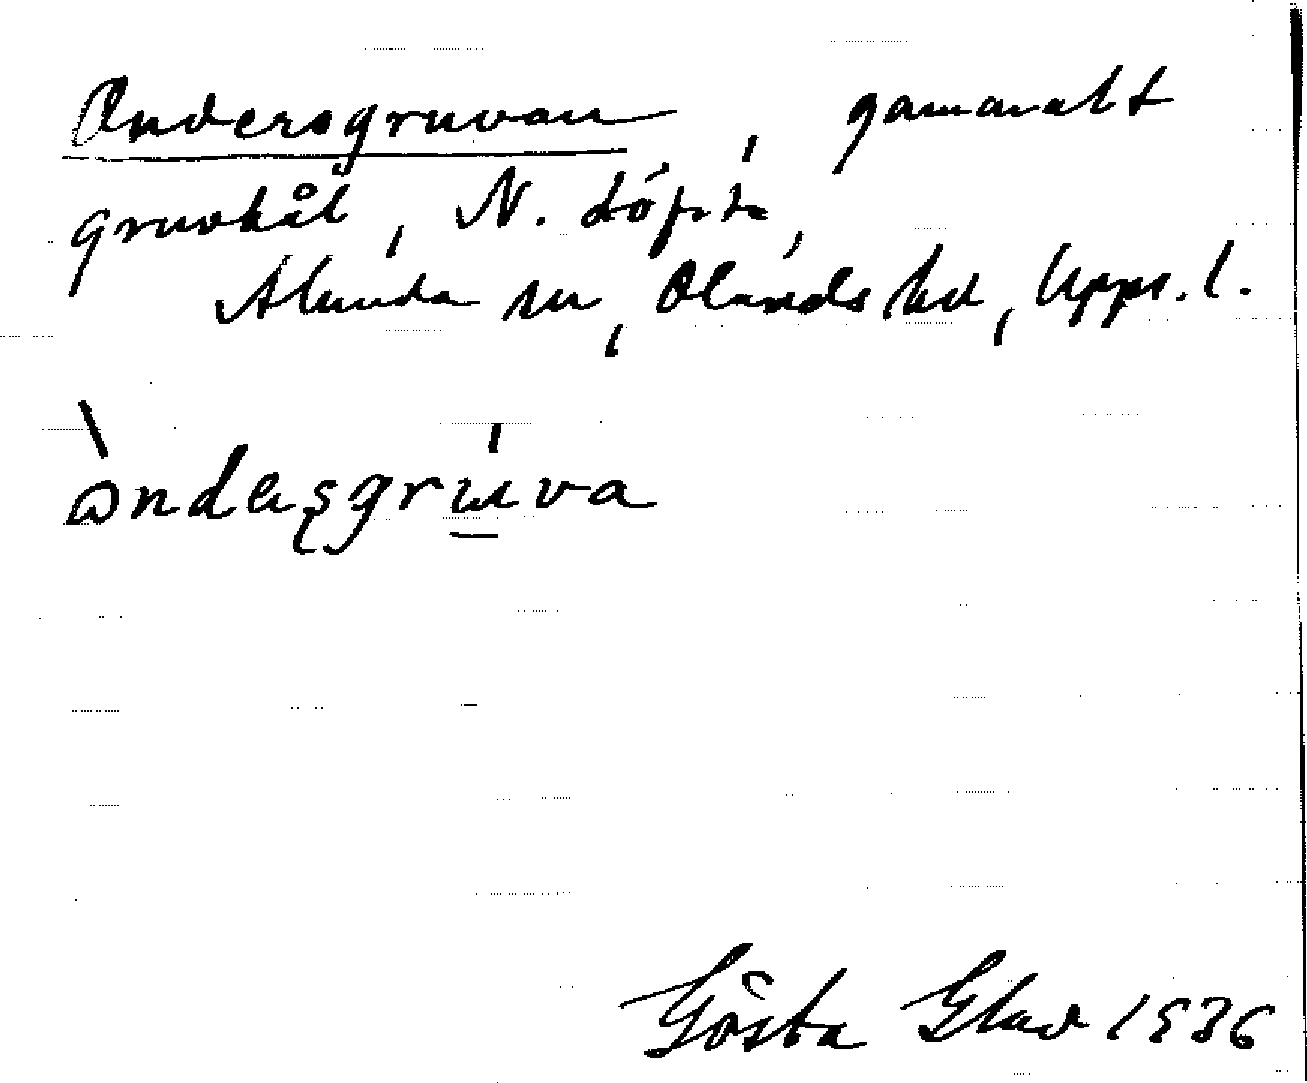 Andersgruvan, gammalt
gruvhål, N. Löfsta,
Alunda sn, Olands hd, Upps. l.
àndasgrúva
Gösta Glad 1936